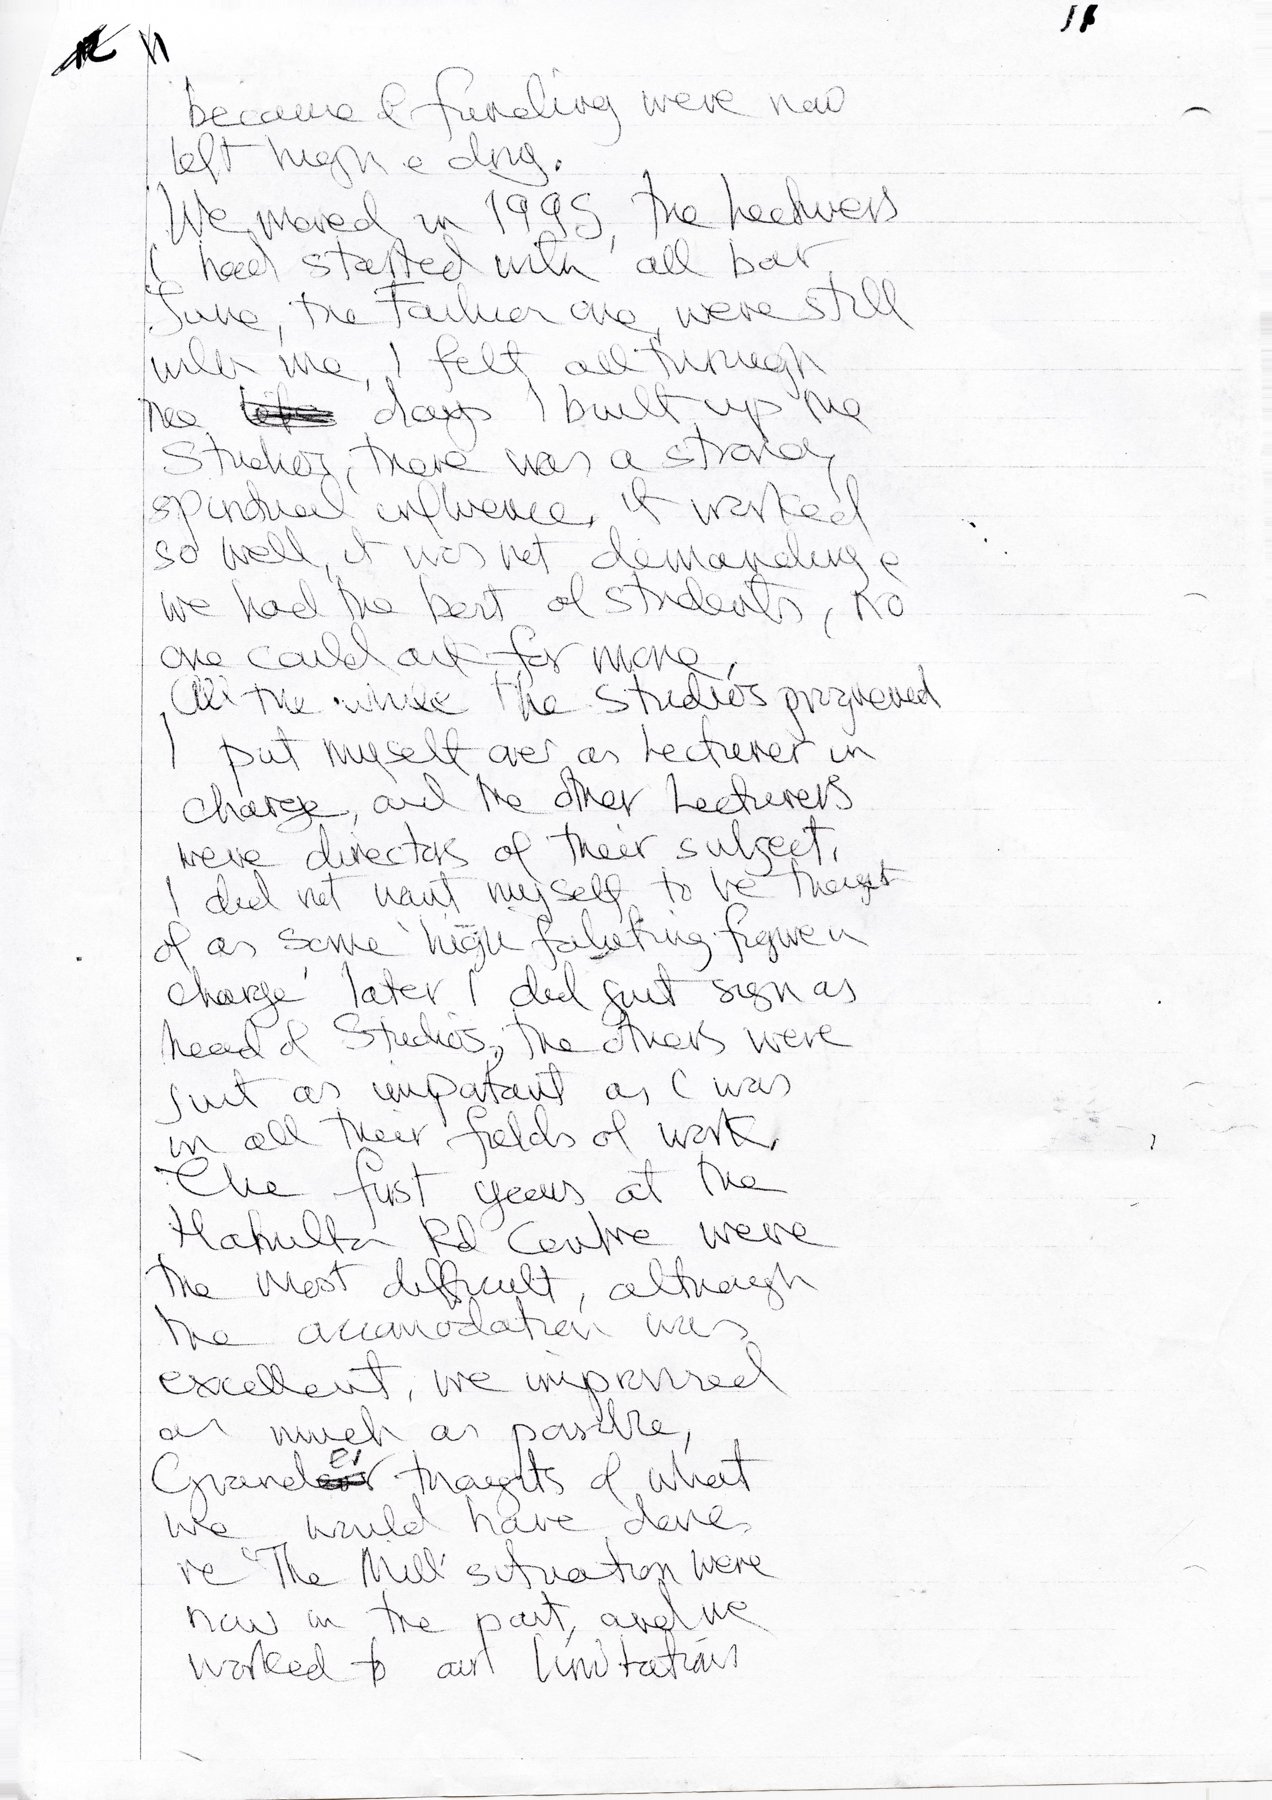 11
11
because of funding were now
left high e dry.
We moved in 1995, the Lecturers
I had started with all bar
June, the Fashion one, were still
with me, I felt all through
the days I built up the
Studios, there was a strong
spiritual influence, it worked
so well, it was not demanding e
we had the best of students, no
one could ask for more,
All the while the Studios progressed
I put myself over as Lecturer in
charge, and the other Lecturers
were directors of their subject,
I did not want myself to be thought
of as some 'high faluting figure in
charge' later I did just sign as
head of Studios, the others were
just as important as I was
in all their fields of work,
The first years at the
Rd Centre were
the most difficult, although
the accomodation was
excellent, we improvised
as much as possible,
Grander thoughts of what
we would have done,
re 'The Mill' situation were
now in the past, and we
worked to our limitations